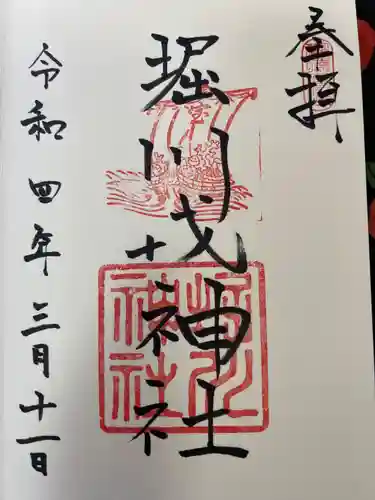 奉拝
堀川戎神社
令和四年三月十一日
堀川
神社